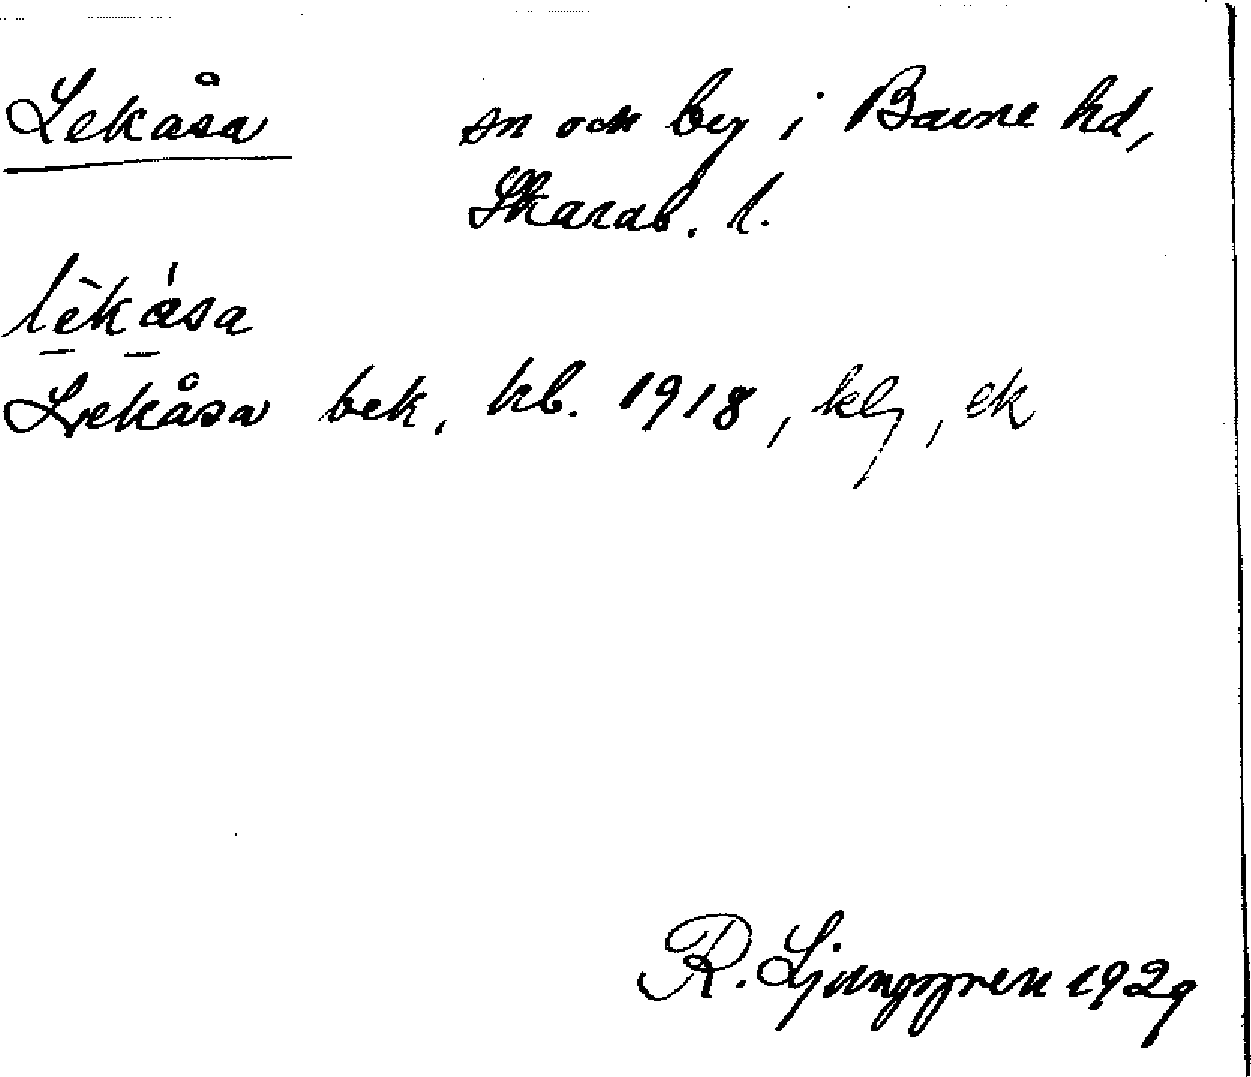 Lekåsa sn och by i Barne hd,
Skarab. l.
lèkása
Lekåsa bek. hb. 1918, klg, ek
R. Ljunggren 1929